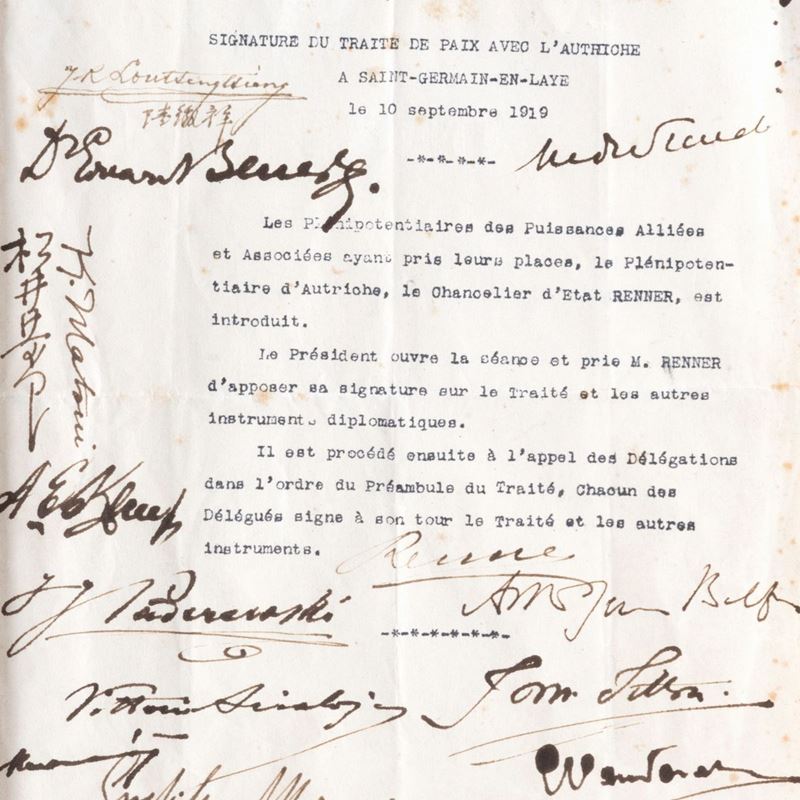 SIGNATURE DU TRAITE DE PAIX AVEC L'AUTRICHE
A SAINT-GERMAIN-EN-LAYE
le 10 septembre 1919
-*-*-*-*-
Les Plénipotentiaires des Puissances Alliées
et Associées ayant pris leurs places, le Plénipoten-
tiaire d'Autriche, le Chancelier d'Etat RENNER, est
introduit.
Le Président ouvre la séance et prie M. RENNER
d'apposer sa signature sur le Traité et les autres
instruments diplomatiques.
Il est procédé ensuite à l'appel des Délégations
dans l'ordre du Préambule du Traité, Chacun des
Délégués signe à son tour le Traité et les autres
instruments.
-*-*-*-*-*-*-
J. R. Loutsengtsiang
陸徵祥
Dr Eduard Beneš.
K. Matsui
松井慶四郎
Renner
Arthur James Balfour
I J Paderewski
Vittorio Scialoja
Tom. Tittoni.